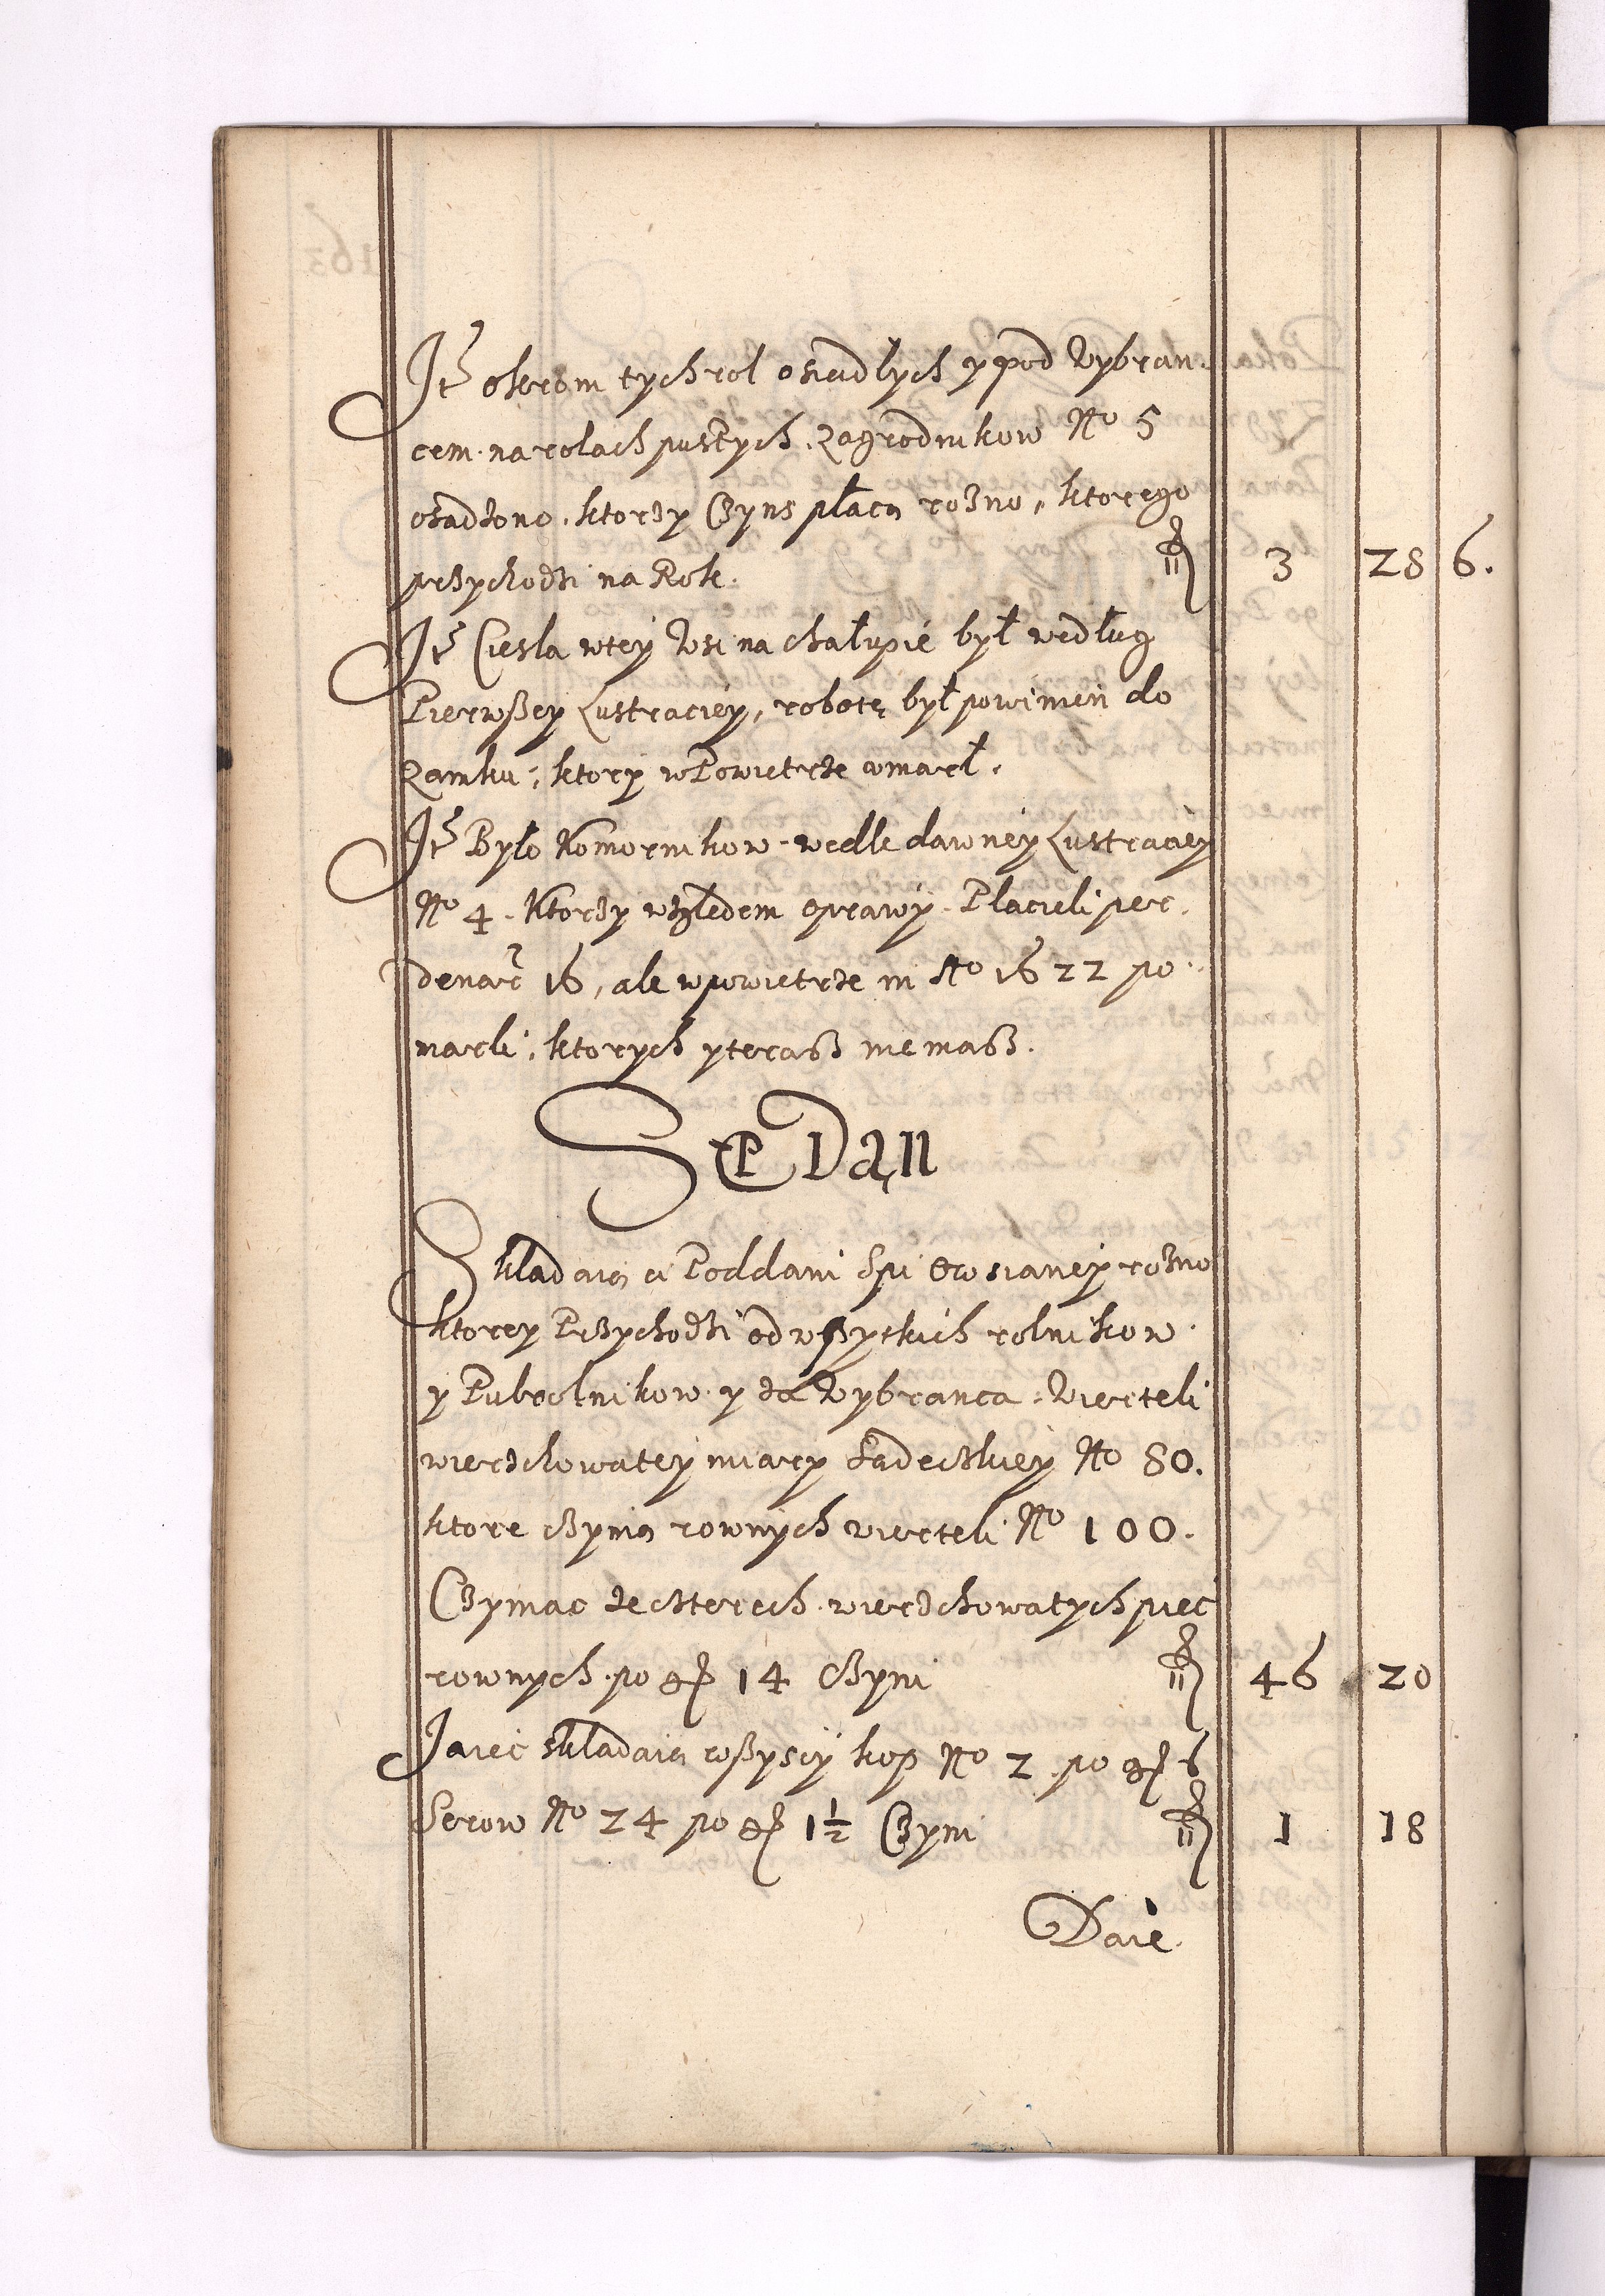 Itē okrom tych rol osiadłych y pod Wybran.
cem. na rolach pustych. Zagrodnikow No 5
osadzono. ktorzy Czyns płacą rozno, ktorego
przychodzi na Rok. fl 3 28 6.
Itē Ciesla wtey Wsi na chałupie był według
Pierwszey Lustraciey, robotę był powinien do
Zamku; ktory w Powietrze umarł.
Itē Było Komornikow. wedle dawney Lustraciey
No 4. Ktorzy względem oprawy. Placieli per.
denar 16, ale wpowietrze in Ao 1622 po
marli; ktorych y teraz nie masz.
SEP Dań
Skladaią ci Poddani Spi Owsianey rozno
ktorey Przychodzi od wszytkich rolnikow.
y Pulrolnikow. y za Wybranca. Wierteli
wierzchowatey miary Sadeckiey No 80.
ktore czynią rownych wierteli No 100.
Czyniac ze czterech. wierzchowatych piec
rownych. po gr 14 Czyni fl 46 20
Jaiec skladaią wszyscy kop No 2. po gr 6
Serow No 24 po gr 1½ Czyni fl 1 18
Daie.